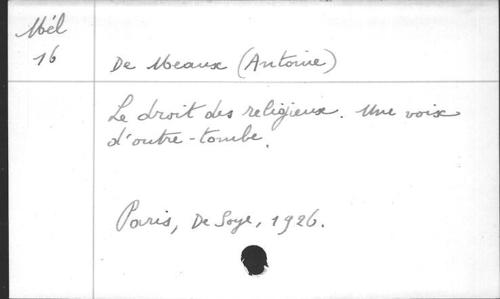 Mél
16
De Meaux (Antoine)
Le droit des religieux. Une voix
d'outre-tombe.
Paris, De Soye, 1926.